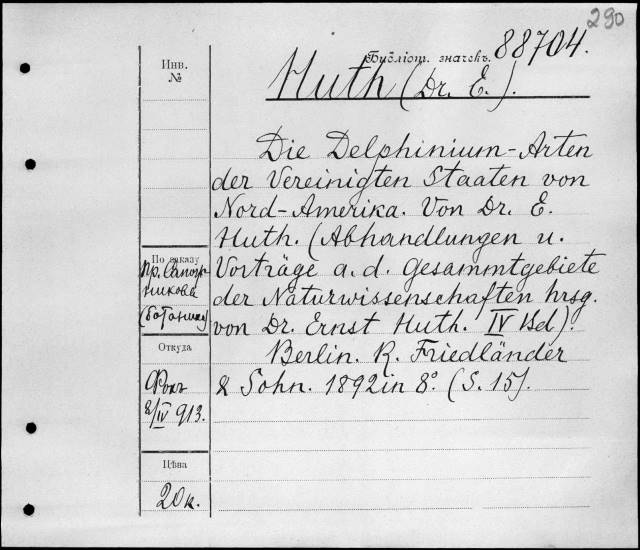 290
Бубліот. значекъ. 88704.
Инв.
№
Huth (Dr. E.).
Die Delphinium-Arten
der Vereinigten Staaten von
Nord-Amerika. Von Dr. E.
Huth. (Abhandlungen u.
Vorträge a. d. Gesammtgebiete
der Naturwissenschaften hrsg.
von Dr. Ernst Huth. IV Bd).
Berlin. R. Friedländer
& Sohn. 1892 in 8°. (S. 15).
По заказу
пр. Сапож-
никова
(ботаника)
Откуда
Фокъ
8/IV 913.
Цѣна
20 к.